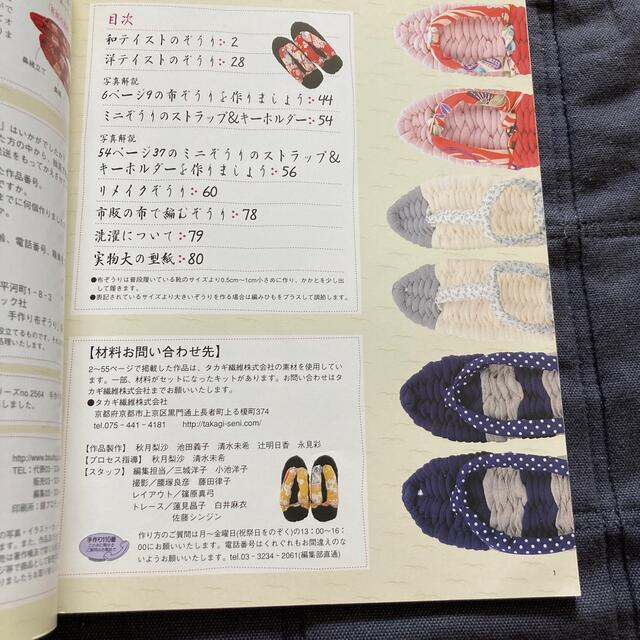 目次
和テイストのぞうり 2
洋テイストのぞうり 28
写真解説
6ページ9の布ぞうりを作りましょう 44
ミニぞうりのストラップ&キーホルダー 54
写真解説
54ページ37のミニぞうりのストラップ&
キーホルダーを作りましょう 56
リメイクぞうり 60
市販の布で編むぞうり 78
洗濯について 79
実物大の型紙 80
●布ぞうりは普段履いている靴のサイズより0.5cm〜1cm小さめに作り、かかとを少し出
して履きます。
●表記されているサイズより大きいぞうりを作る場合は編みひもをプラスして調節します。
【材料お問い合わせ先】
2〜55ページで掲載した作品は、タカギ繊維株式会社の素材を使用してい
ます。一部、材料がセットになったキットがあります。お問い合わせはタ
カギ繊維株式会社までお願いいたします。
●タカギ繊維株式会社
京都府京都市上京区黒門通上長者町上る榎町374
tel.075-441-4181 http://takagi-seni.com/
【作品製作】 秋月梨沙 池田義子 清水未希 辻明日香 永見彩
【プロセス指導】 秋月梨沙 清水未希
【スタッフ】 編集担当/三城洋子 小池洋子
撮影/腰塚良彦 藤田律子
レイアウト/篠原真弓
トレース/蓮見昌子 白井麻衣
佐藤シンジン
手作り110番
作り方のご質問は月〜金曜日(祝祭日をのぞく)の13:00〜16:
00にお願いいたします。電話番号はくれぐれもお間違えのな
いようお願いいたします。 tel.03-3234-2061(編集部直通)
1
鼻緒立て
はいかがでしたか
た作品番号、
ですか。
までに何個作りました
齢、電話番号、職業
平河町1-8-3
ック社
手作り布ぞうり
ーズno.2564
しました。
TEL:代表03